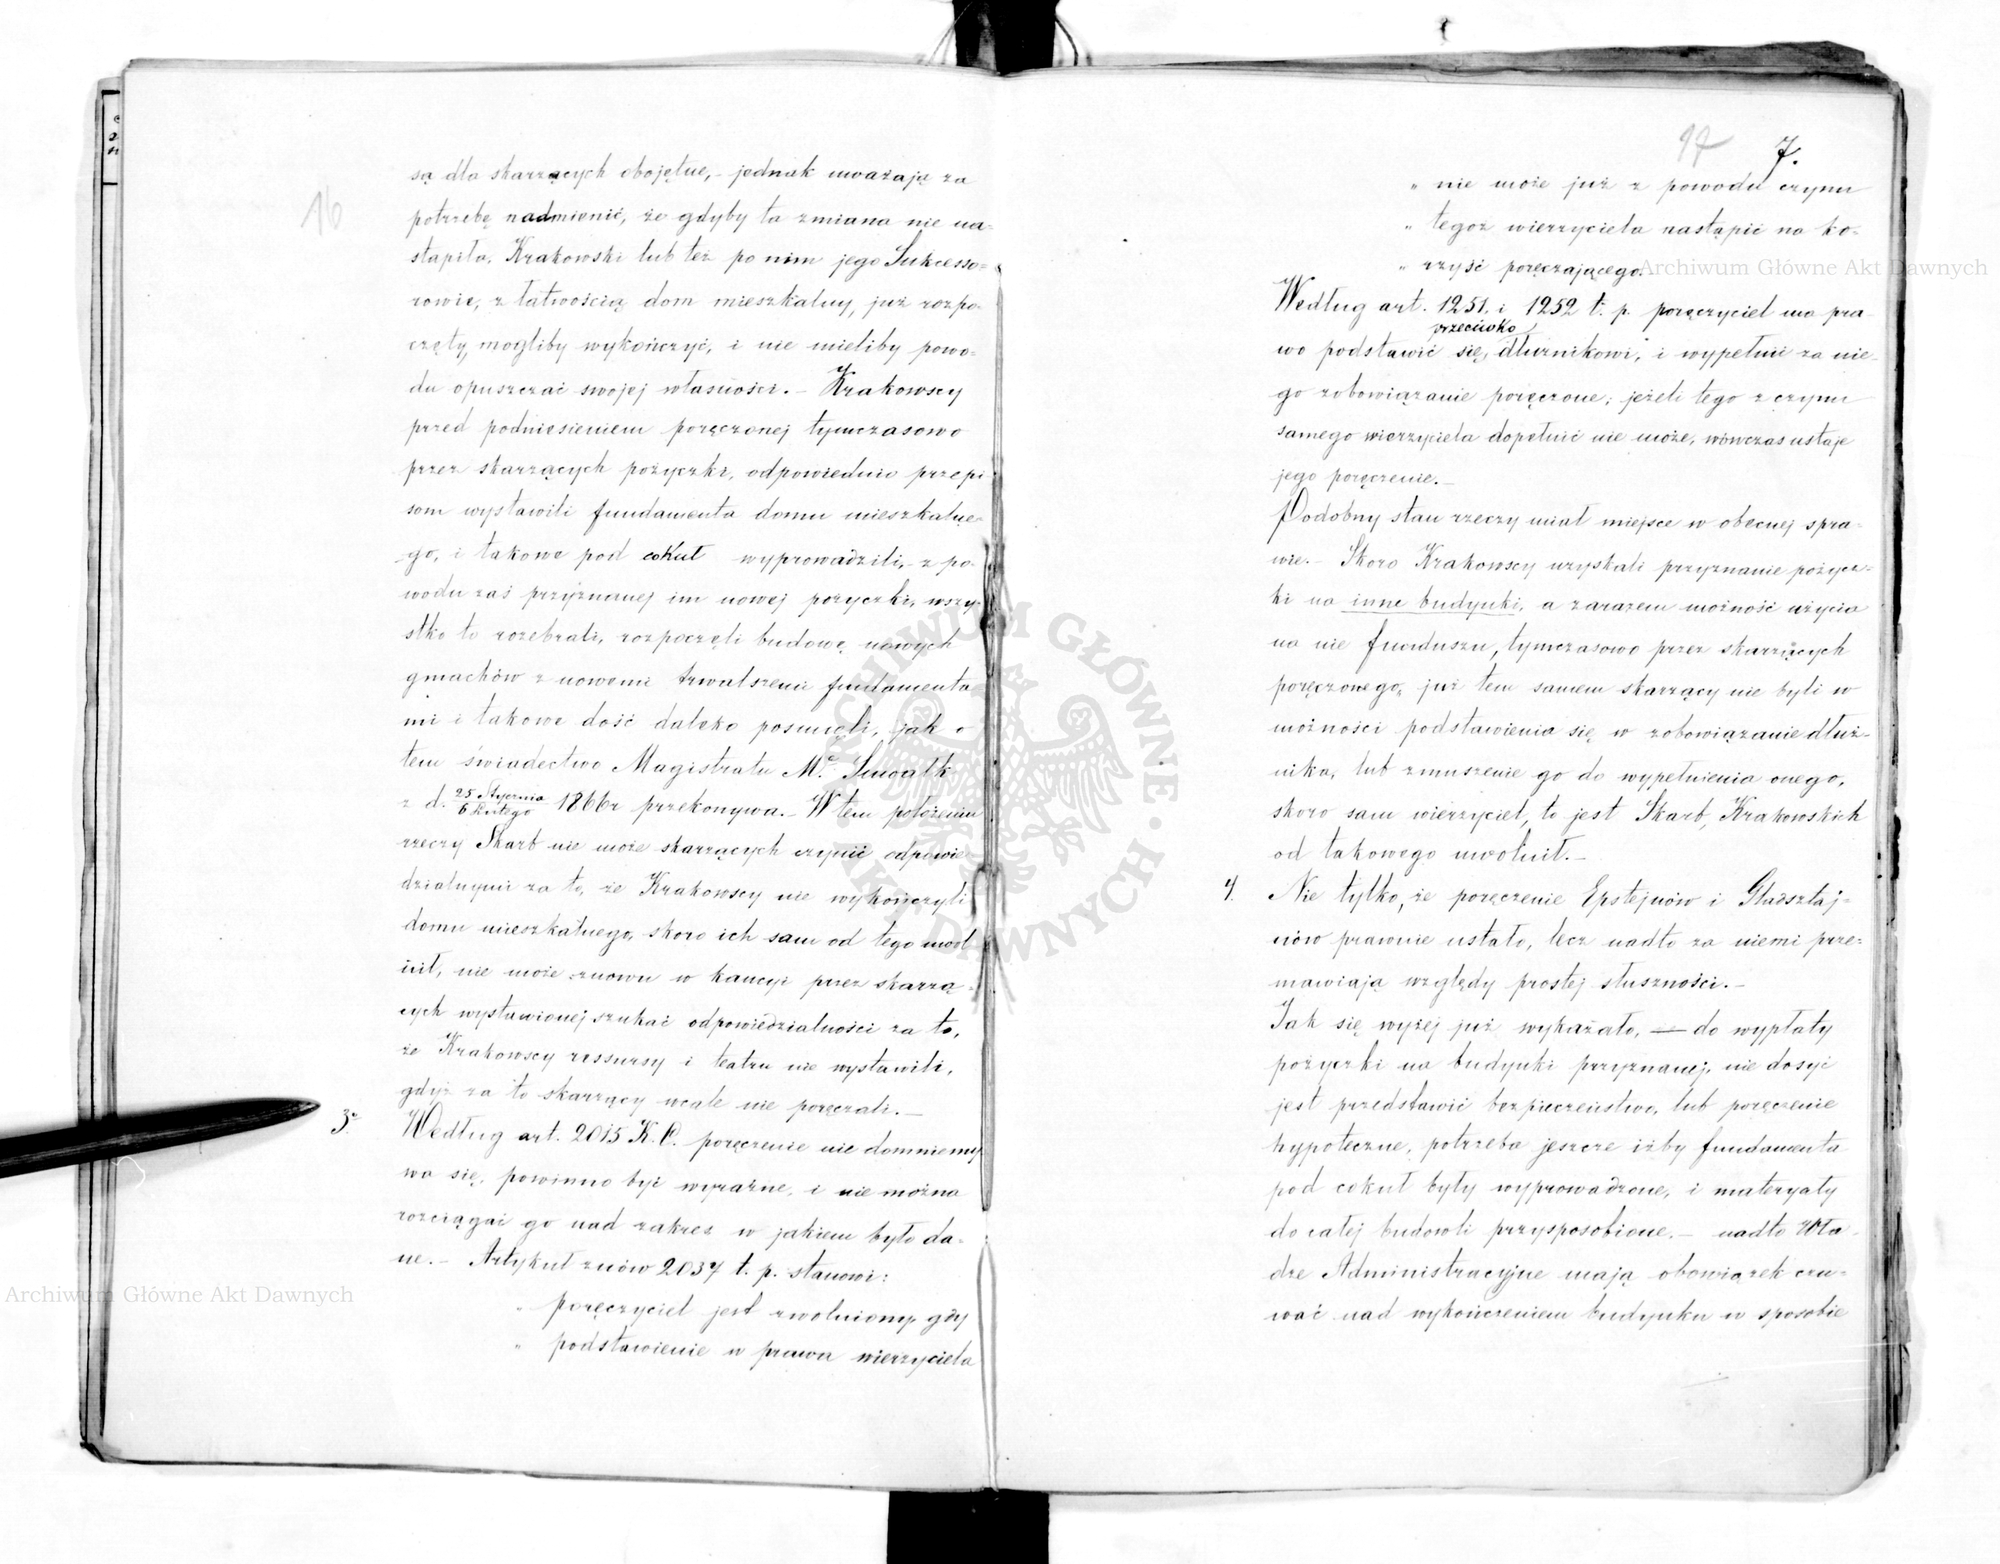 16
są dla skarzących obojętne,- jednak uważają za
potrzebę nadmienić, że gdyby ta zmiana nie na-
stąpiła, Krakowski lub też po nim jego Sukcesso-
rowie, z łatwością dom mieszkalny, już rozpo-
częty, mogliby wykończyć, i nie mieliby powo-
du opuszczać swojej własności.- Krakowscy
przed podniesieniem poręczonej tymczasowo
przez skarzących pożyczki, odpowiednio przepi
som wystawili fundamenta domu mieszkalne-
go, i takowe pod cokuł wyprowadzili,- z po-
wodu zaś przyznanej im nowej pożyczki, wszy-
stko to rozebrali, rozpoczęli budowę nowych
gmachów z nowemi trwalszemi fundamenta
mi i takowe dość daleko posunęli, jak o
tem świadectwo Magistratu Mta Suwałk
z d. 25 Stycznia / 6 Lutego 1866 r przekonywa.- W tem położeniu
rzeczy Skarb nie może skarzących czynić odpowie-
dzialnymi za to, że Krakowscy nie wykończyli
domu mieszkalnego, skoro ich sam od tego uwol
nił, nie może znowu w kaucyi przez skarzą-
cych wystawionej szukać odpowiedzialności za to,
że Krakowscy ressursy i teatru nie wystawili,
gdyż za to skarzący wcale nie poręczali.-
3. Według art. 2015 K. C. poręczenie nie domniemy
wa się, powinno być wyraźne, i nie można
rozciągać go nad zakres w jakiem było da-
ne.- Artykuł znów 2037 t. p. stanowi:
" poręczyciel jest zwolniony, gdy
" podstawienie w prawa wierzyciela
97 7.
" nie może już z powodu czynu
" tegoż wierzyciela nastąpić na ko-
" rzyść poręczającego.
Według art. 1251. i 1252 t. p. poręczyciel ma pra-
przeciwko
wo podstawić się, dłużnikowi, i wypełnić za nie-
go zobowiązanie poręczone; jeżeli tego z czynu
samego wierzyciela dopełnić nie może, wówczas ustaje
jego poręczenie.-
Podobny stan rzeczy miał miejsce w obecnej spra-
wie.- Skoro Krakowscy uzyskali przyznanie pożycz-
ki na inne budynki, a zarazem możność użycia
na nie funduszu, tymczasowo przez skarzących
poręczonego, już tem samem skarzący nie byli w
możności podstawienia się w zobowiązanie dłuż-
nika, lub zmuszenie go do wypełnienia onego,
skoro sam wierzyciel, to jest Skarb, Krakowskich
od takowego uwolnił.-
4. Nie tylko, że poręczenie Epstejnów i Glasztaj-
nów prawnie ustało, lecz nadto za niemi prze-
mawiają względy prostej słuszności.-
Jak się wyżej już wykazało, — do wypłaty
pożyczki na budynki przyznanej, nie dosyć
jest przedstawić bezpieczeństwo, lub poręczenie
hypoteczne, potrzeba jeszcze iżby fundamenta
pod cokuł były wyprowadzone, i materyały
do całej budowli przysposobione.- nadto Wła-
dze Administracyjne mają obowiązek czu-
wać nad wykończeniem budynku w sposobie
Archiwum Główne Akt Dawnych
Archiwum Główne Akt Dawnych
ARCHIWUM GŁÓWNE AKT DAWNYCH